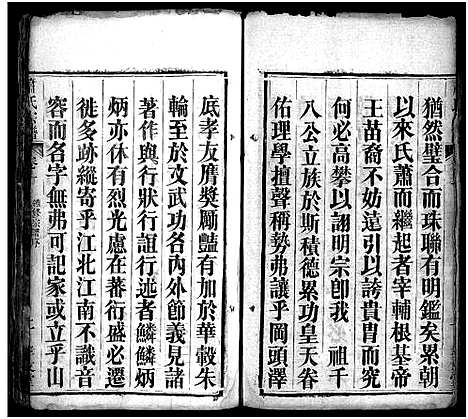 猶然璧合而珠聯有明鑑矣累朝
以來氏蕭而繼起者宰輔根基帝
王苗裔不妨遠引以誇貴胄而究
何必高攀以詡明宗卽我 祖千
八公立族於斯積德累功皇天眷
佑理學擅聲稱勢弗讓乎岡頭澤
底孝友膺獎勵豔有加於華轂朱
輪至於文武功名內外節義見諸
著作與行狀行誼行述者鱗鱗炳
炳亦休有烈光慮在蕃衍盛必遷
徙多跡縱寄乎江北江南不識音
容而名字無弗可記家或立乎山
蕭氏